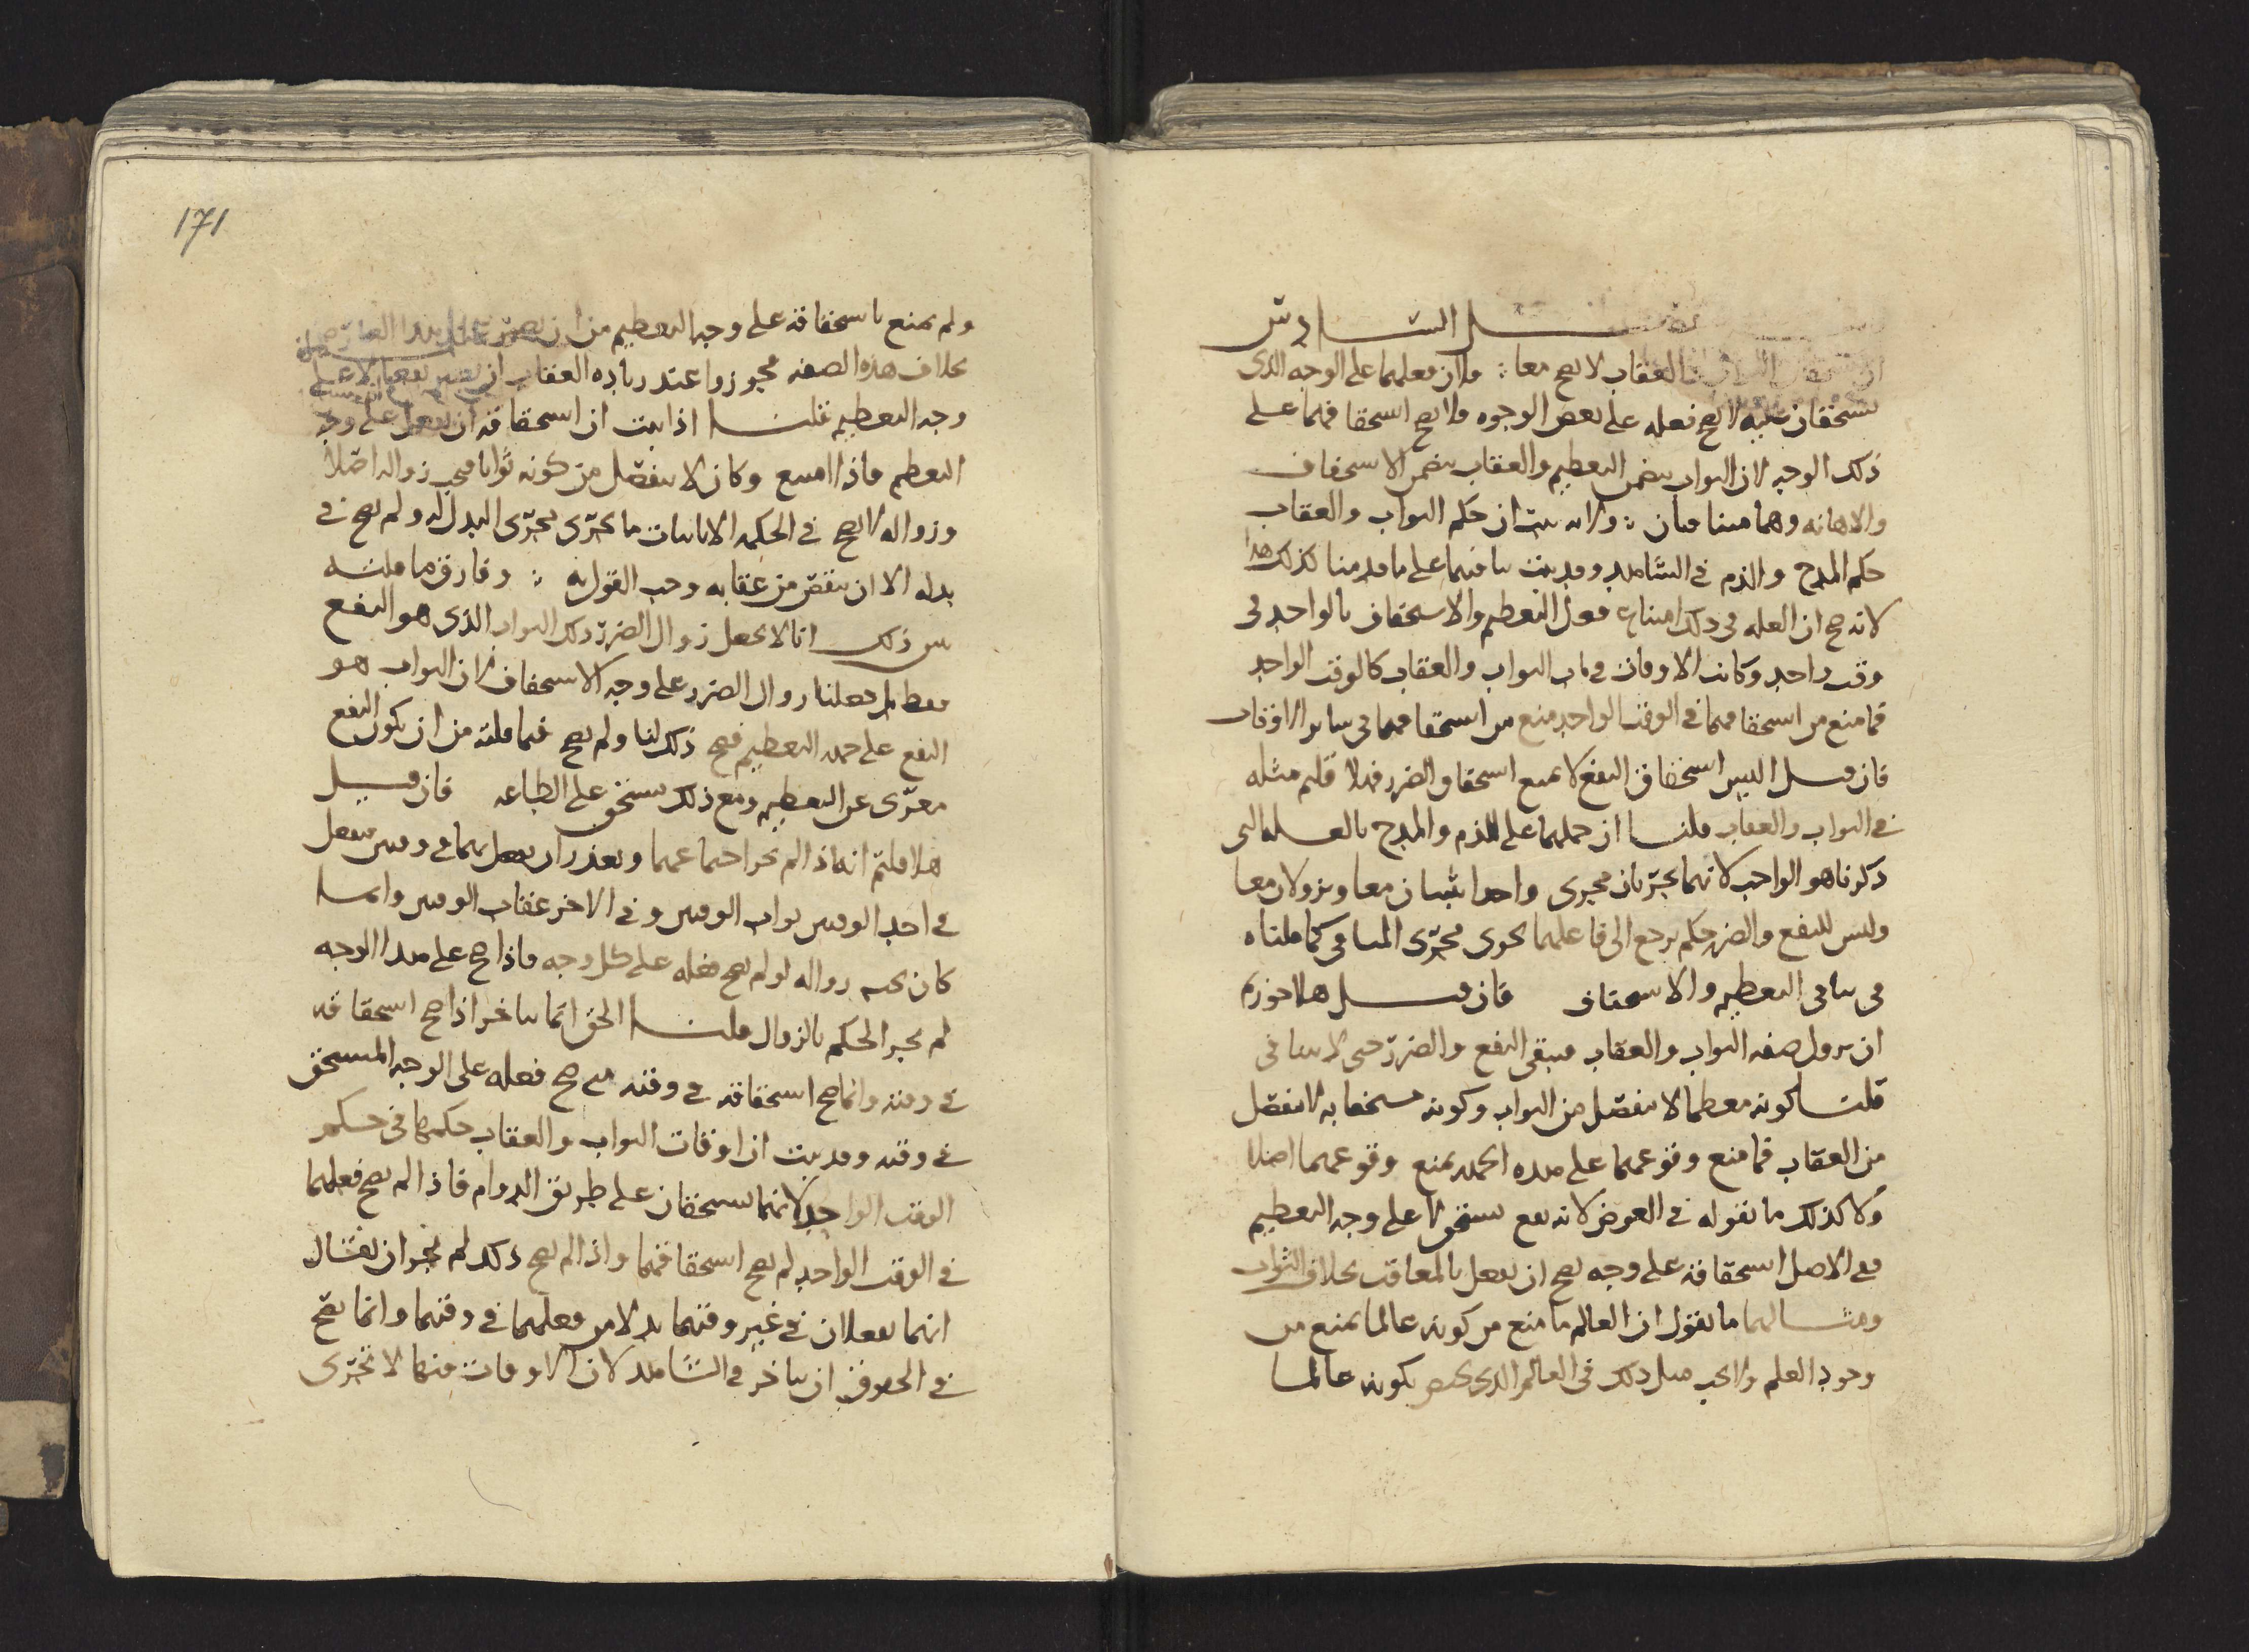 السادس
العقاب لا يصح معا لان فعلهما على الوجه الذى
يستحقان عليه لا يصح فعله على بعض الوجوه ولا يصح استحقاقهما على
ذلك الوجه لان الثواب يتضمن التعظيم والعقاب يتضمن الاستخفاف
والاهانه وهما متنافيان ولانه يثبت ان حكم الثواب والعقاب
حكم المدح والذم فى الشاهد وقد ثبت تنافيهما على ما قدمنا فكذلك هذا
لانه صح ان العله فى ذلك امتناع فعل التعظيم والاستخفاف بالواحد فى
وقت واحد وكانت الاوقات فى باب الثواب والعقاب كالوقت الواحد
فما منع من استحقاقهما فى الوقت الواحد منع من استحقاقهما فى سائر الاوقات
فان قيل اليس استحقاق النفع لا يمنع استحقاق الضرر فهلا قلتم مثله
فى الثواب والعقاب قلنا ان حملهما على الذم والمدح بالعله التى
ذكرناها هو الواجب لانهما يجريان مجرى واحدا يثبتان معا ويزولان معا
وليس للنفع والضرر حكم يرجع الى فاعلهما يجرى مجرى المنافى كما قلناه
فى تنافى التعظيم والاستخفاف فان قيل هلا جوزتم
ان يزول صفه الثواب والعقاب فيبقى النفع والضرر حتى لا يتنافى
قلنا كونه معظما لا ينفصل من الثواب وكونه مستخفا به لا ينفصل
من العقاب فما منع وقوعهما على هذه الجمله يمنع وقوعهما اصلا
ولا كذلك ما نقوله فى العوض لانه نفع يستحق لا على وجه التعظيم
ففى الاصل استحقاقه على وجه يصح ان يفعل بالمعاقب بخلاف الثواب
ومثالهما ما نقول ان العالم ما منع من كونه عالما يمنع من
وجود العلم ولا يجب مثل ذلك فى العالم الذى يختص بكونه عالما
171
ولم يمنع باستحقاقه على وجه التعظيم من ان
بخلاف هذه الصفه فجوزوا عند زياده العقاب ان يصير نفعا لا على
وجه التعظيم قلنا اذا ثبت ان استحقاقه ان يفعل على وجه
التعظيم فاذا امتنع وكان لا ينفصل من كونه ثوابا فيجب زواله اصلا
وزواله لا يصح فى الحكمه الا باثبات ما يجرى مجرى البدل له ولم يصح فى
بدله الا ان ينقص من عقابه وجب القول به وفارق ما قلته
من ذلك انا لا نجعل زوال الضرر ذلك الثواب الذى هو النفع
فقط بل جعلنا زوال الضرر على وجه الاستخفاف لان الثواب هو
النفع على جهه التعظيم فصح ذلك لنا ولم يصح فيما قلته من ان يكون النفع
معرى عن التعظيم ومع ذلك يستحق على الطاعه فان قيل
هلا قلتم انه اذا لم يجز اجتماعهما وتعذر ان يفعل بهما فى وقتين يفعل
فى احد الوقتين ثواب الوقتين وفى الاخر عقاب الوقتين وانما
كان يجب زواله لو لم يصح فعله على كل وجه فاذا صح على هذا الوجه
لم يجز الحكم بالزوال قلنا الحق انما يتاخر اذا صح استحقاقه
فى وقته وانما صح استحقاقه فى وقته متى صح فعله على الوجه المستحق
فى وقته وقد ثبت ان اوقات الثواب والعقاب حكمها فى حكم
الوقت الواحد لانهما يستحقان على طريق الدوام فاذا لم يصح فعلهما
فى الوقت الواحد لم يصح استحقاقهما واذا لم يصح ذلك لم يجز ان يقال
انهما يفعلان فى غير وقتهما بدلا من فعلهما فى وقتهما وانما يصح
فى الحقوق ان يتاخر فى الشاهد لان الاوقات فيها لا تجرى